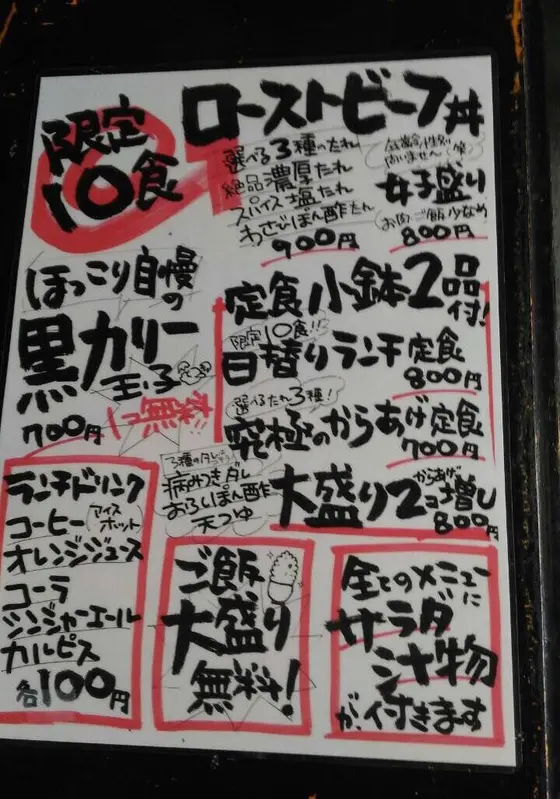 限定
10食
ローストビーフ丼
選べる3種のたれ
絶品濃厚たれ
スパイス塩たれ
わさびぽん酢たれ
900円
年齢性別
問いません(笑)
女子盛り
(お肉、ご飯少なめ)
800円
ほっこり自慢の
黒カリー
玉子
無料
700円
定食小鉢2品付!
限定10食!!
日替りランチ定食
800円
選べるたれ3種!
究極のからあげ定食
700円
3種のタレ
病みつきダレ
おろしぽん酢
天つゆ
大盛り からあげ2コ増し
800円
ランチドリンク
コーヒー アイス ホット
オレンジジュース
コーラ
ジンジャーエール
カルピス
各100円
ご飯
大盛り
無料!
全てのメニューに
サラダ
汁物
が、付きます